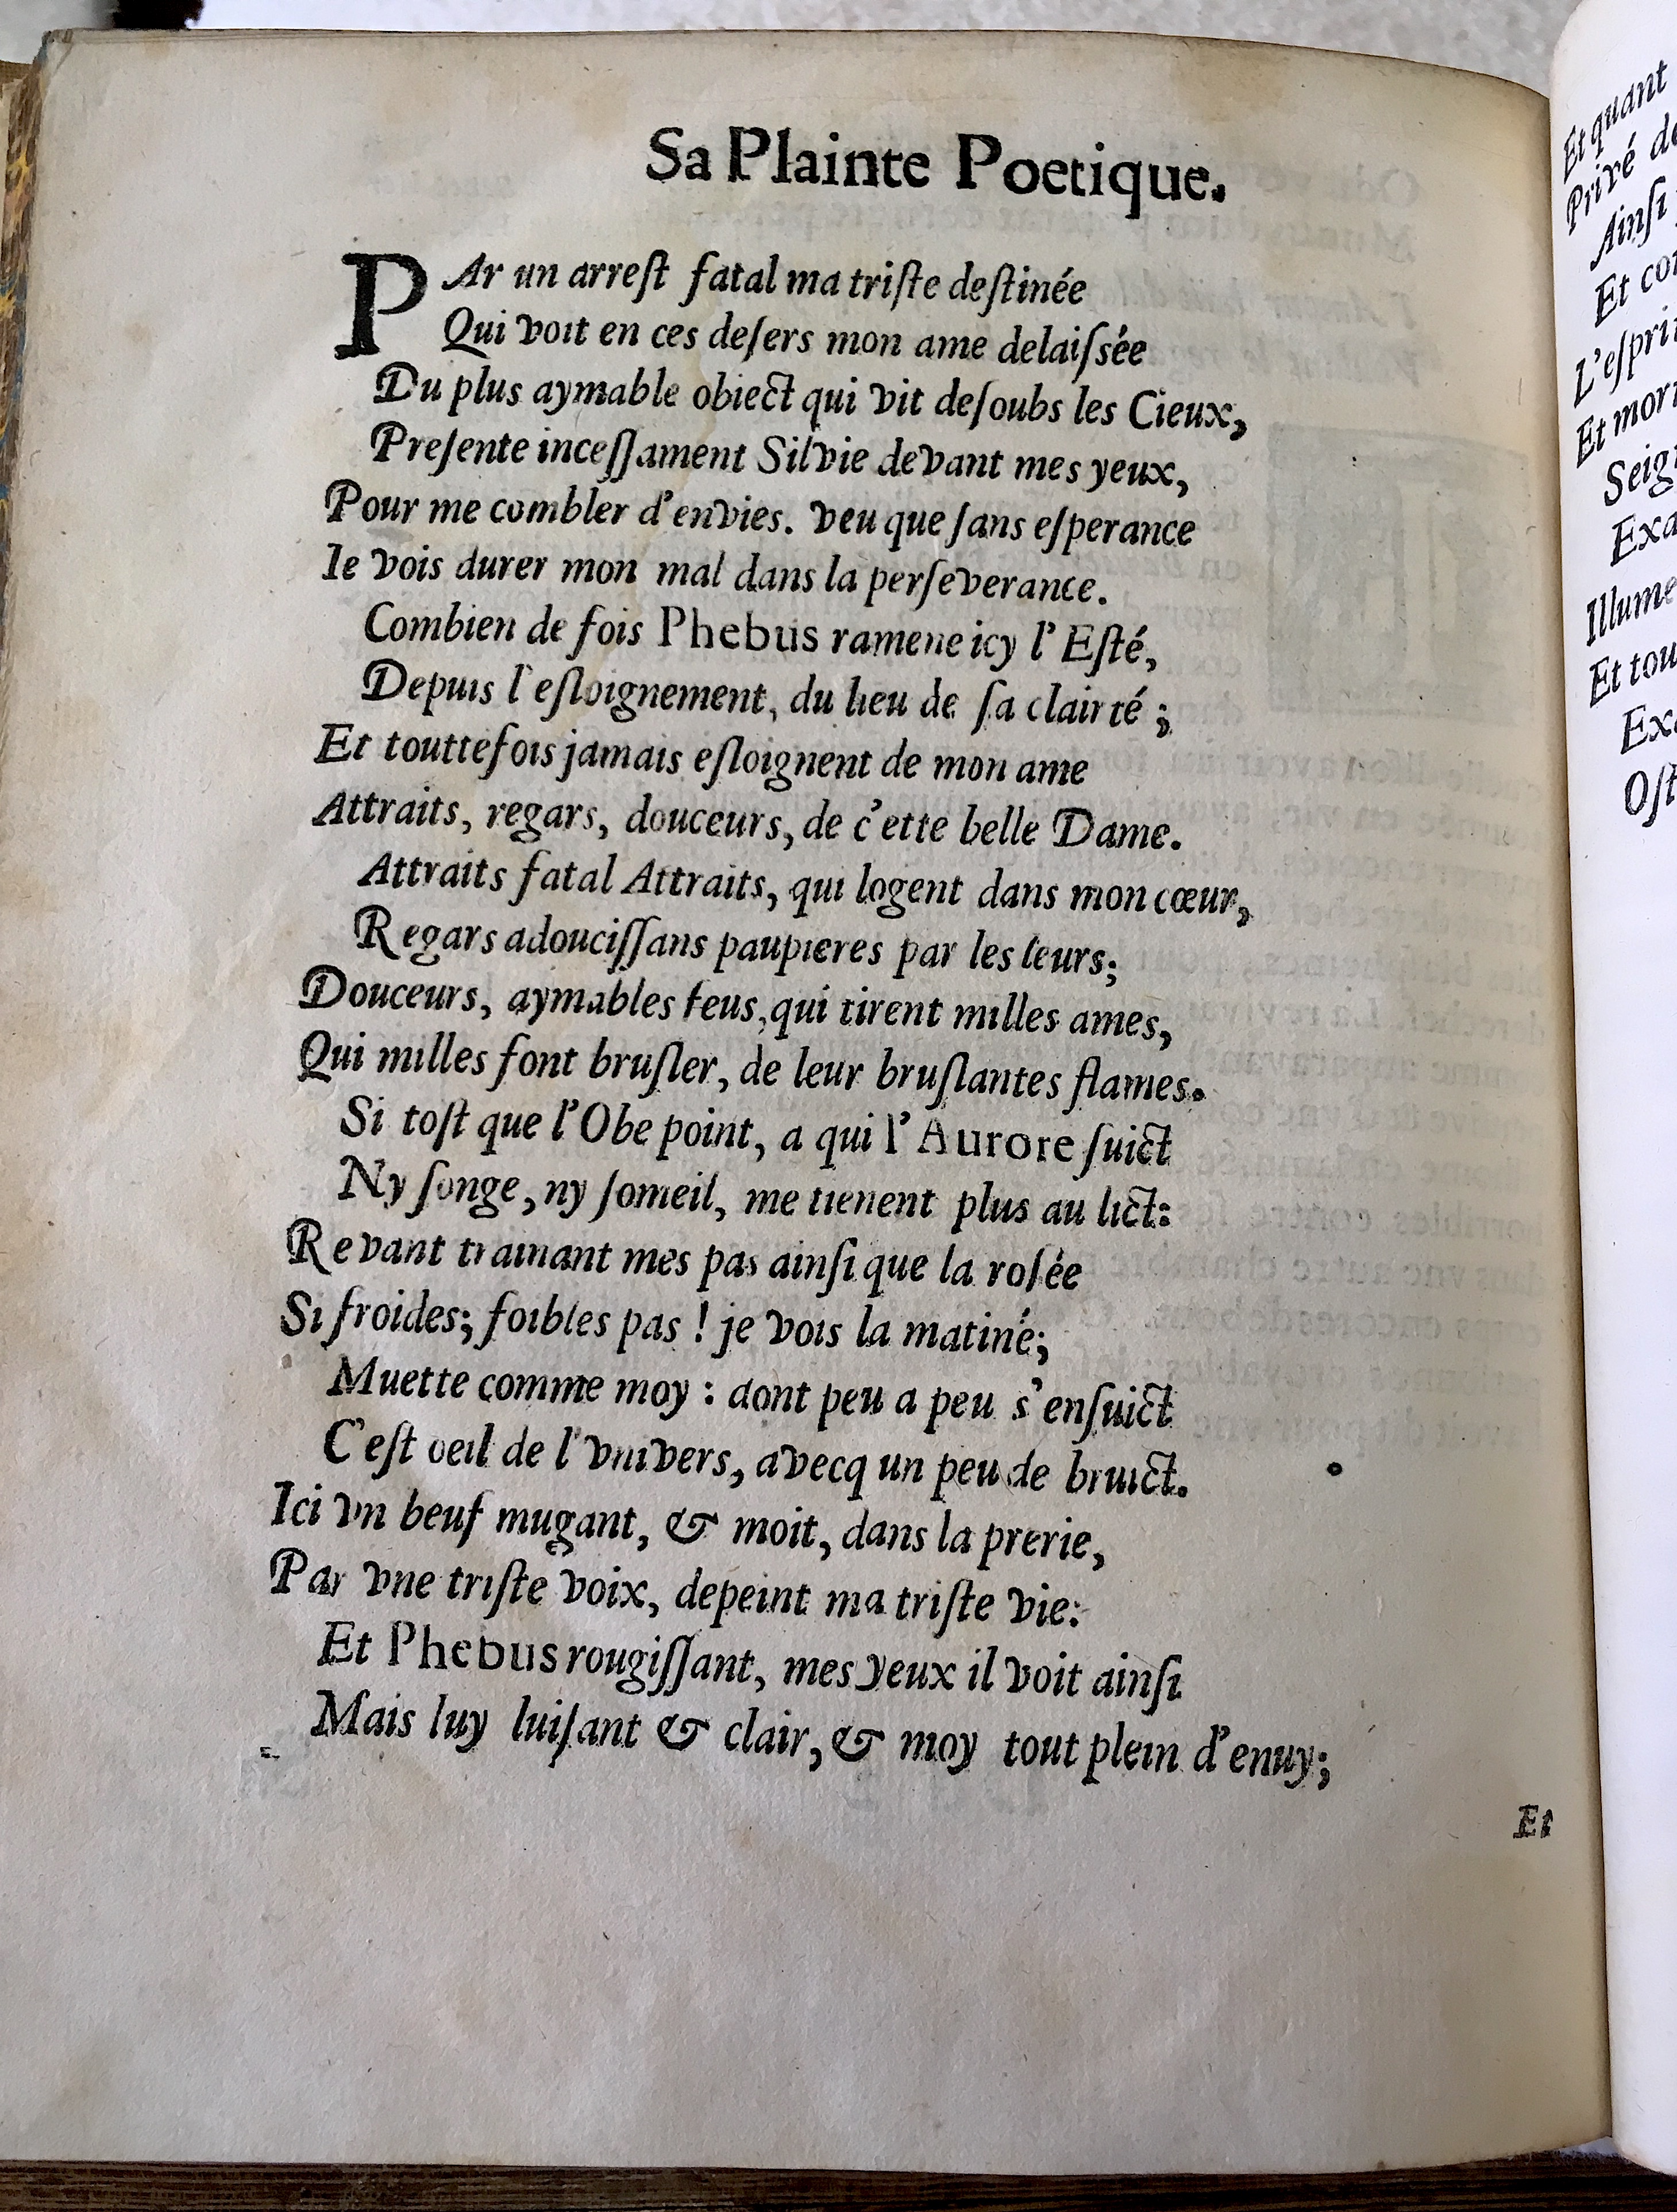 Sa Plainte Poetique.
PAr un arreſt fatal ma triſte deſtinée
Qui voit en ces deſers mon ame delaiſsée
Du plus aymable obiect qui vit deſoubs les Cieux,
Preſente inceſſament Silvie devant mes yeux,
Pour me combler d'envies. veu que ſans eſperance
Ie vois durer mon mal dans la perſeverance.
Combien de fois Phebus ramene icy l'Eſté,
Depuis l'eſloignement, du lieu de ſa clairté;
Et touttefois jamais eſloignent de mon ame
Attraits, regars, douceurs, de c'ette belle Dame.
Attraits fatal Attraits, qui logent dans mon cœur,
Regars adouciſſans paupieres par les leurs;
Douceurs, aymables feus, qui tirent milles ames,
Qui milles font bruſler, de leur bruſlantes flames.
Si toſt que l'Obe point, a qui l'Aurore ſuict
Ny ſonge, ny ſomeil, me tienent plus au lict:
Revant trainant mes pas ainſi que la roſée
Si froides; foibles pas! je vois la matiné;
Muette comme moy: dont peu a peu s'enſuict
C'eſt oeil de l'vnivers, avecq un peu de bruict.
Ici vn beuf mugant, & moit, dans la prerie,
Par vne triſte voix, depeint ma triſte vie:
Et Phebus rougiſſant, mes yeux il voit ainſi
Mais luy luiſant & clair, & moy tout plein d'enuy;
Et
Et quant
Privé de
Ainſi
Et
L'eſprit
Et
Exa
Illume
Et tou
Exa
Oſt